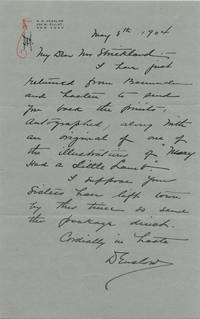 May 8th 1904
My Dear Mrs Strickland:-
I have just
returned from Bermuda
and hasten to send
you back the prints,
autographed, along with
an original of one of
the illustrations of "Mary
Had a Little Lamb".
I suppose your
Sisters have left town
by this time so send
the package direct.
Cordially in haste
Denslow